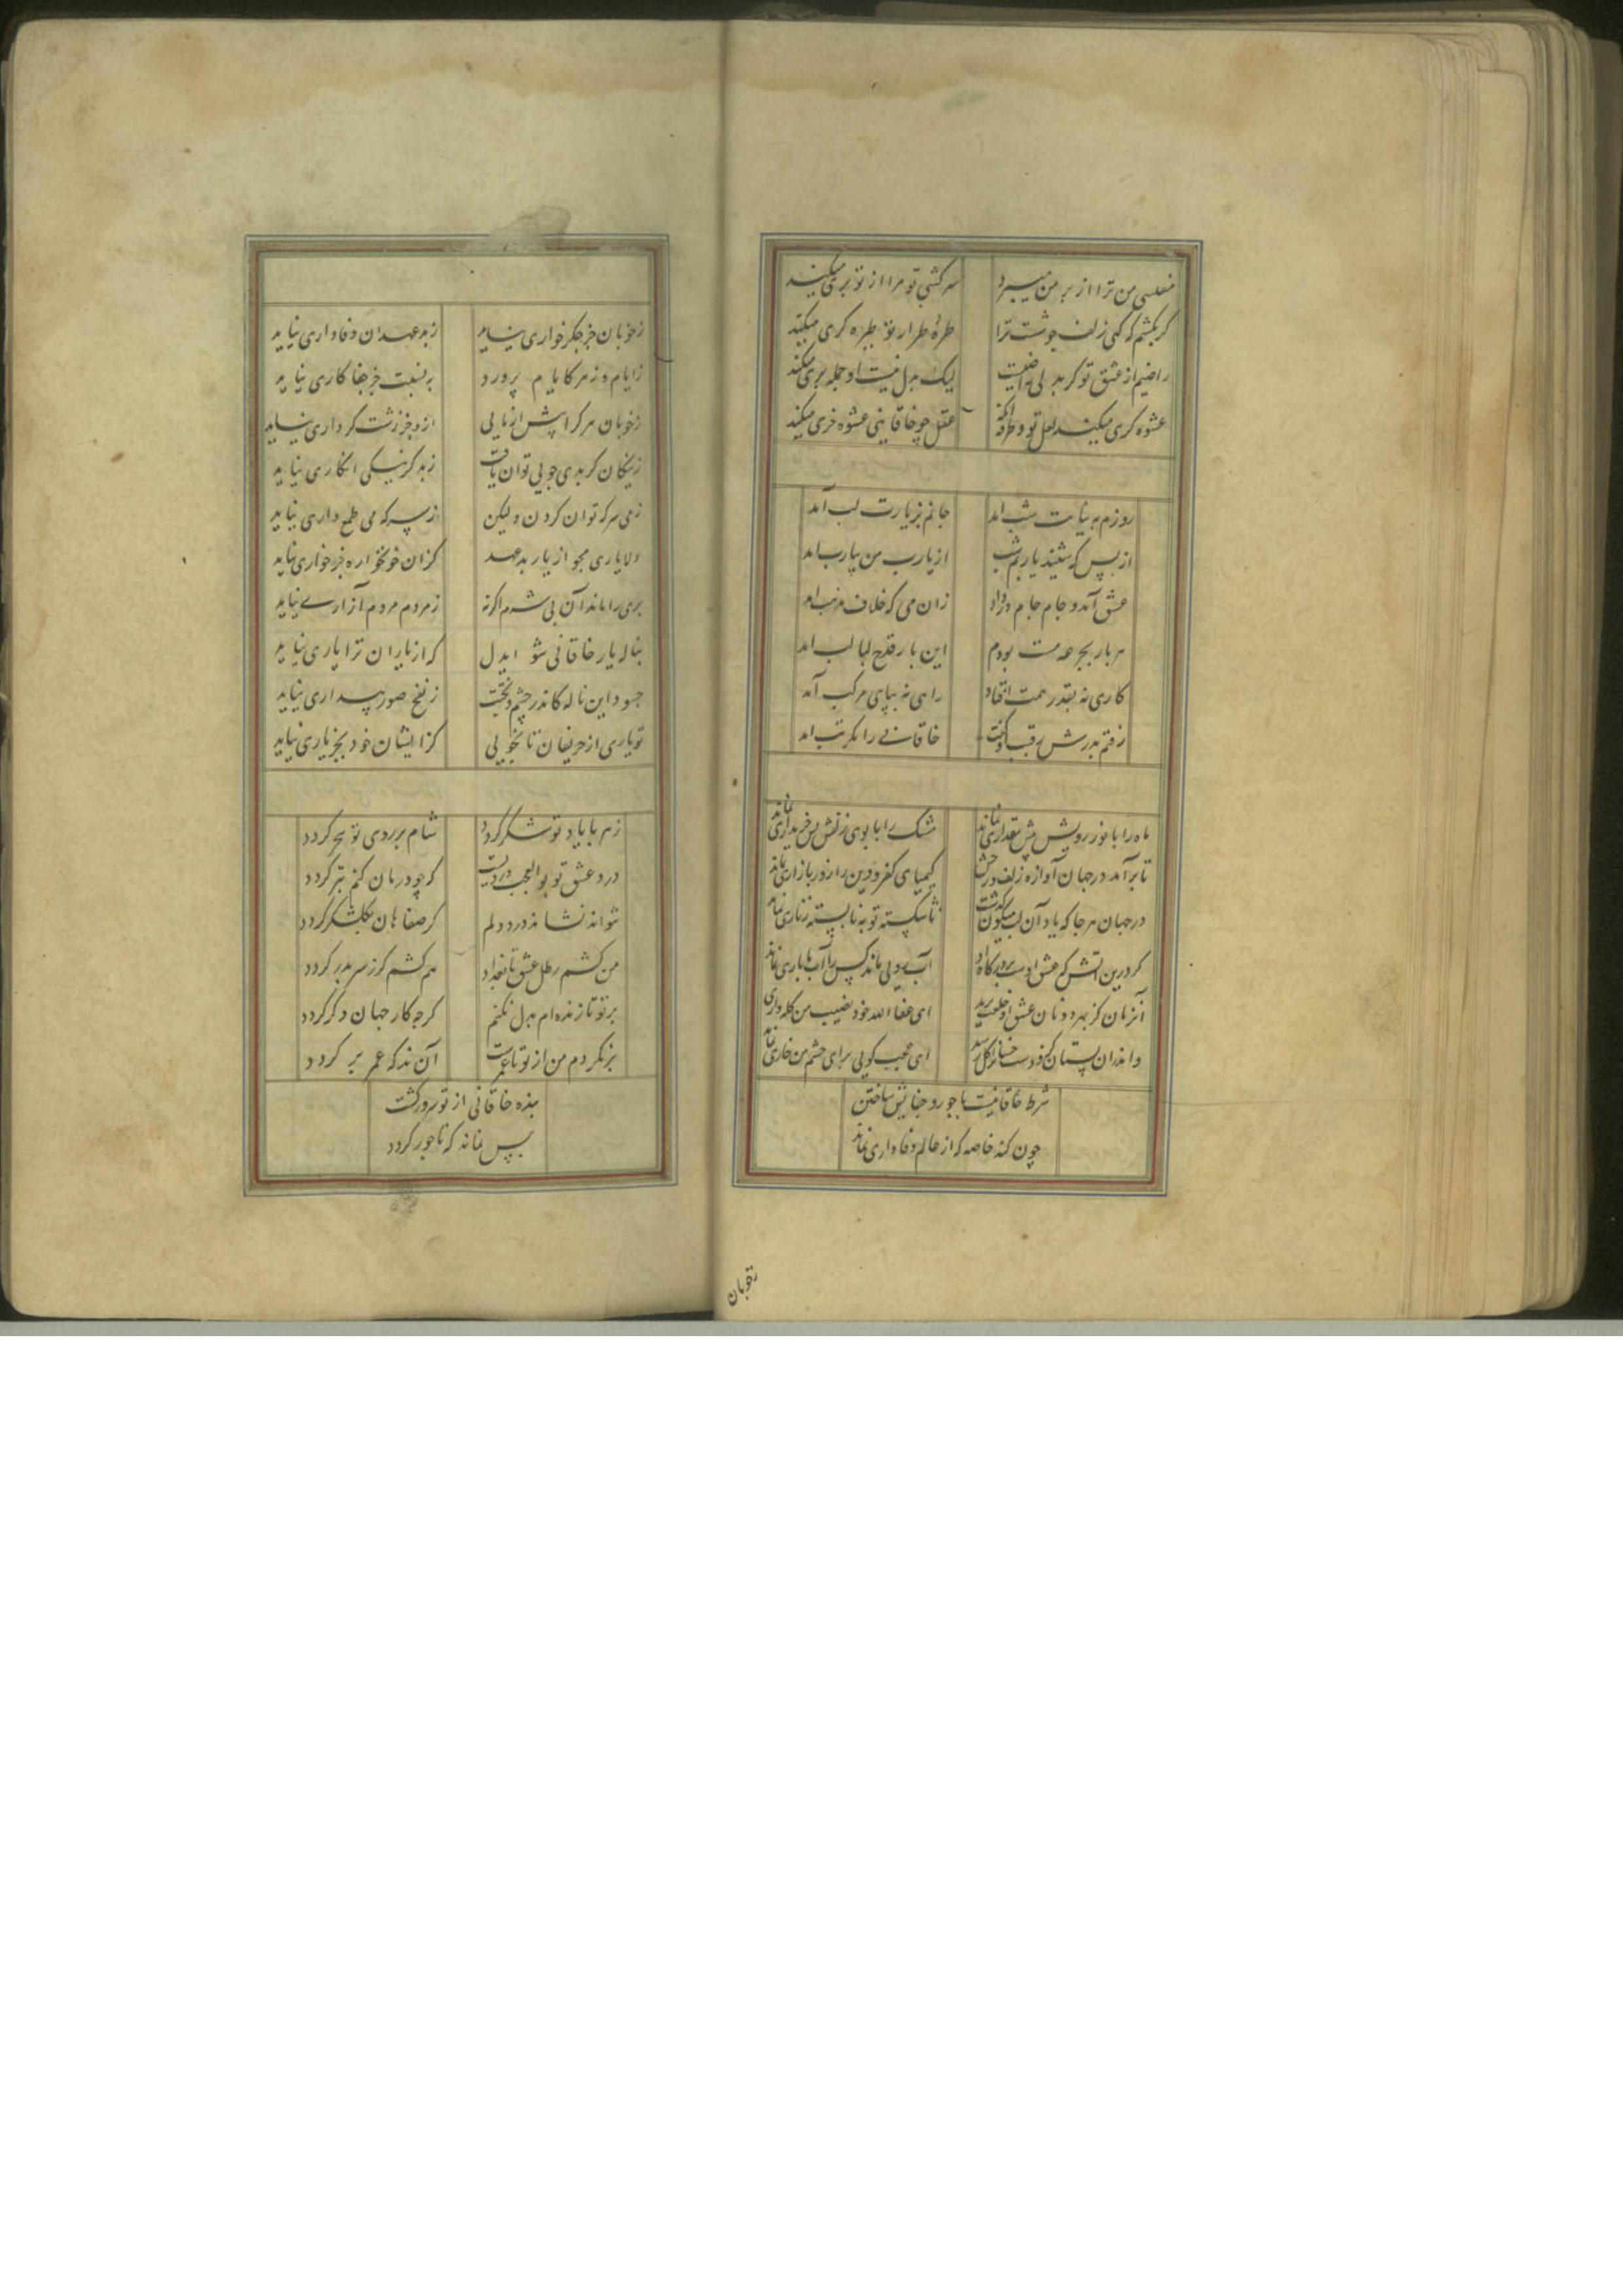 مفلسی من ترا از بر من میبرد سرکشی تو مرا از تو بری میکند
گر بکشم گه گهی زلف چو شست ترا طره طرار تو طیره گری میکند
راضیم از عشق تو گر بدلی راضیست لیک بدل نیست او جمله بری میکند
عشوه گری میکند لعل تو و طرفه آنکه عقل چو خاقانیی عشوه خری میکند
روزم به نیابت شب امد جانم بزیارت لب آمد
از بس که شنید یاربم شب از یارب من بیارب امد
عشق آمد و جام جام در داد زان می که خلاف مذهب امد
هر بار بجرعه مست بودم این بار قدح لبالب امد
کاری نه بقدر همت افتاد راهی نه بپای مرکب آمد
رفتم بدرش رقیب او گفت خاقانی را مگر تب امد
ماه را با نور رویش بیش مقداری نماند مشک را با بوی زلفش بس خریداری نماند
تا بر آمد در جهان آوازه زلف و رخش کیمیای کفر و دین را روز بازاری نماند
در جهان هر جا که یاد آن لب میگون گذشت ناشکسته توبه نا بسته زناری نماند
گر درین اتش که عشق اوست بر درگاه او آب رویی ماند کس را آب ما باری نماند
آنزمان کز بهر دونان عشق او خلعت برید ای عفا الله خود نصیب من کله واری نماند
واندران بستان کزو دست خسان را گل رسید ای عجب گویی برای چشم من خاری نماند
شرط خاقانیست با جور و جفایش ساختن
چون کند خاصه که از عالم وفاداری نماند
زخوبان
زخوبان جز جگر خواری نیاید زبد عهدان وفاداری نیاید
زایام و زهر کایام پرورد به نسبت جز جفا کاری نیاید
زخوبان هر کرا بیش از مایی ازو جز زشت کرداری نیاید
زنیکان گر بدی جویی توان یافت زبد گر نیکی انگاری نیاید
زمی سرکه توان کردن ولیکن ازسرکه می طمع داری نیاید
دلا یاری مجو از یار بد عهد کزان خونخواره جز خواری نیاید
پری را ماند آن بی شرم اگر نه زمردم مردم آزاری نیاید
بناله یار خاقانی شو ایدل که از یاران ترا یاری نیاید
چسود این ناله کاندر چشم و بخت زنفخ صور بیداری نیاید
تو یاری از حریفان تا نجویی کز ایشان خود بجز یاری نیاید
زهر با یاد تو شکر گردد شام بر روی تو سحر گردد
درد عشق تو بوالعجب دردیست گر چو درمان کنم بتر گردد
نتواند نشاند درد دلم گر صفاهان گلشکر گردد
من کشم رطل عشق تا بغداد هم کشم گر ز سر بدر گردد
بر تو تا زنده ام بدل نکنم گر چه کار جهان دگر گردد
بر نگردم من از تو تا عمرست آن نه که عمر بر گردد
بنده خاقانی از تو سرور گشت
بس نماند که تاجور گردد